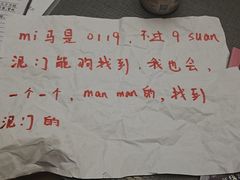 mi马是0119,不过9suan
泥们能狗找到,我也会,
一个一个,man man的,找到
泥们的